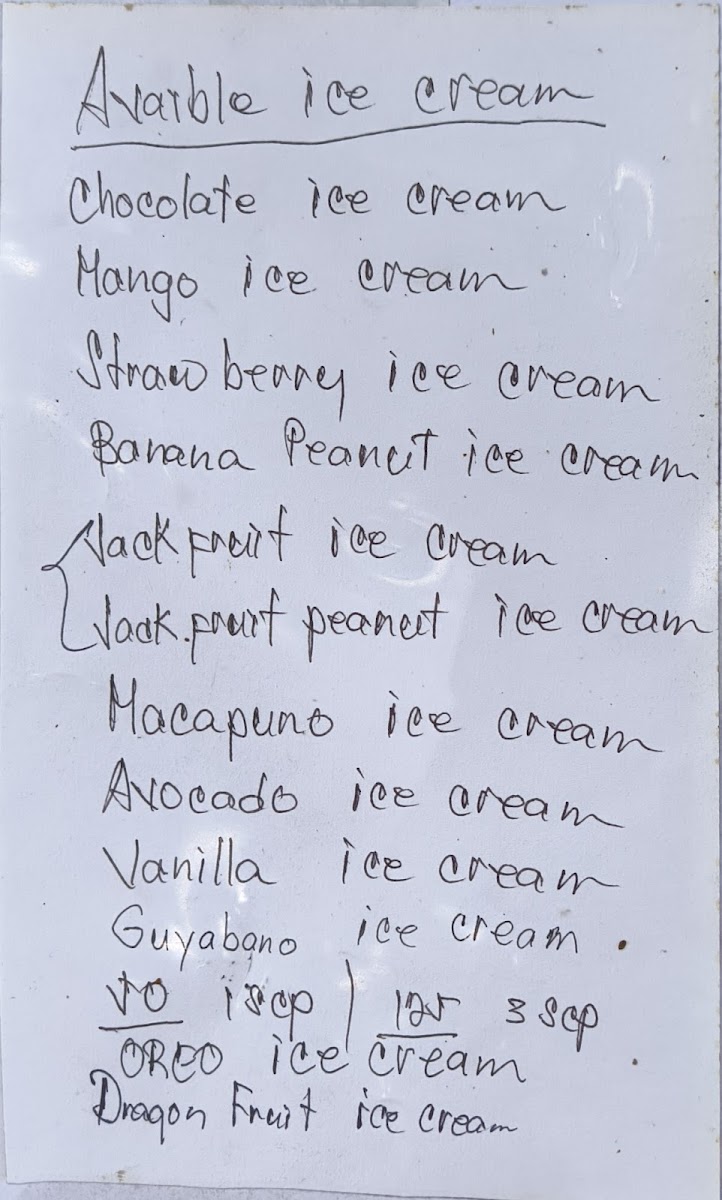 Avaible ice cream
Chocolate ice cream
Mango ice cream
Strawberry ice cream
Banana Peanut ice cream
Jackfruit ice cream
Jack.fruit peanut ice cream
Macapuno ice cream
Avocado ice cream
Vanilla ice cream
Guyabano ice cream
50 1 scp | 125 3 scp
OREO ice cream
Dragon Fruit ice cream